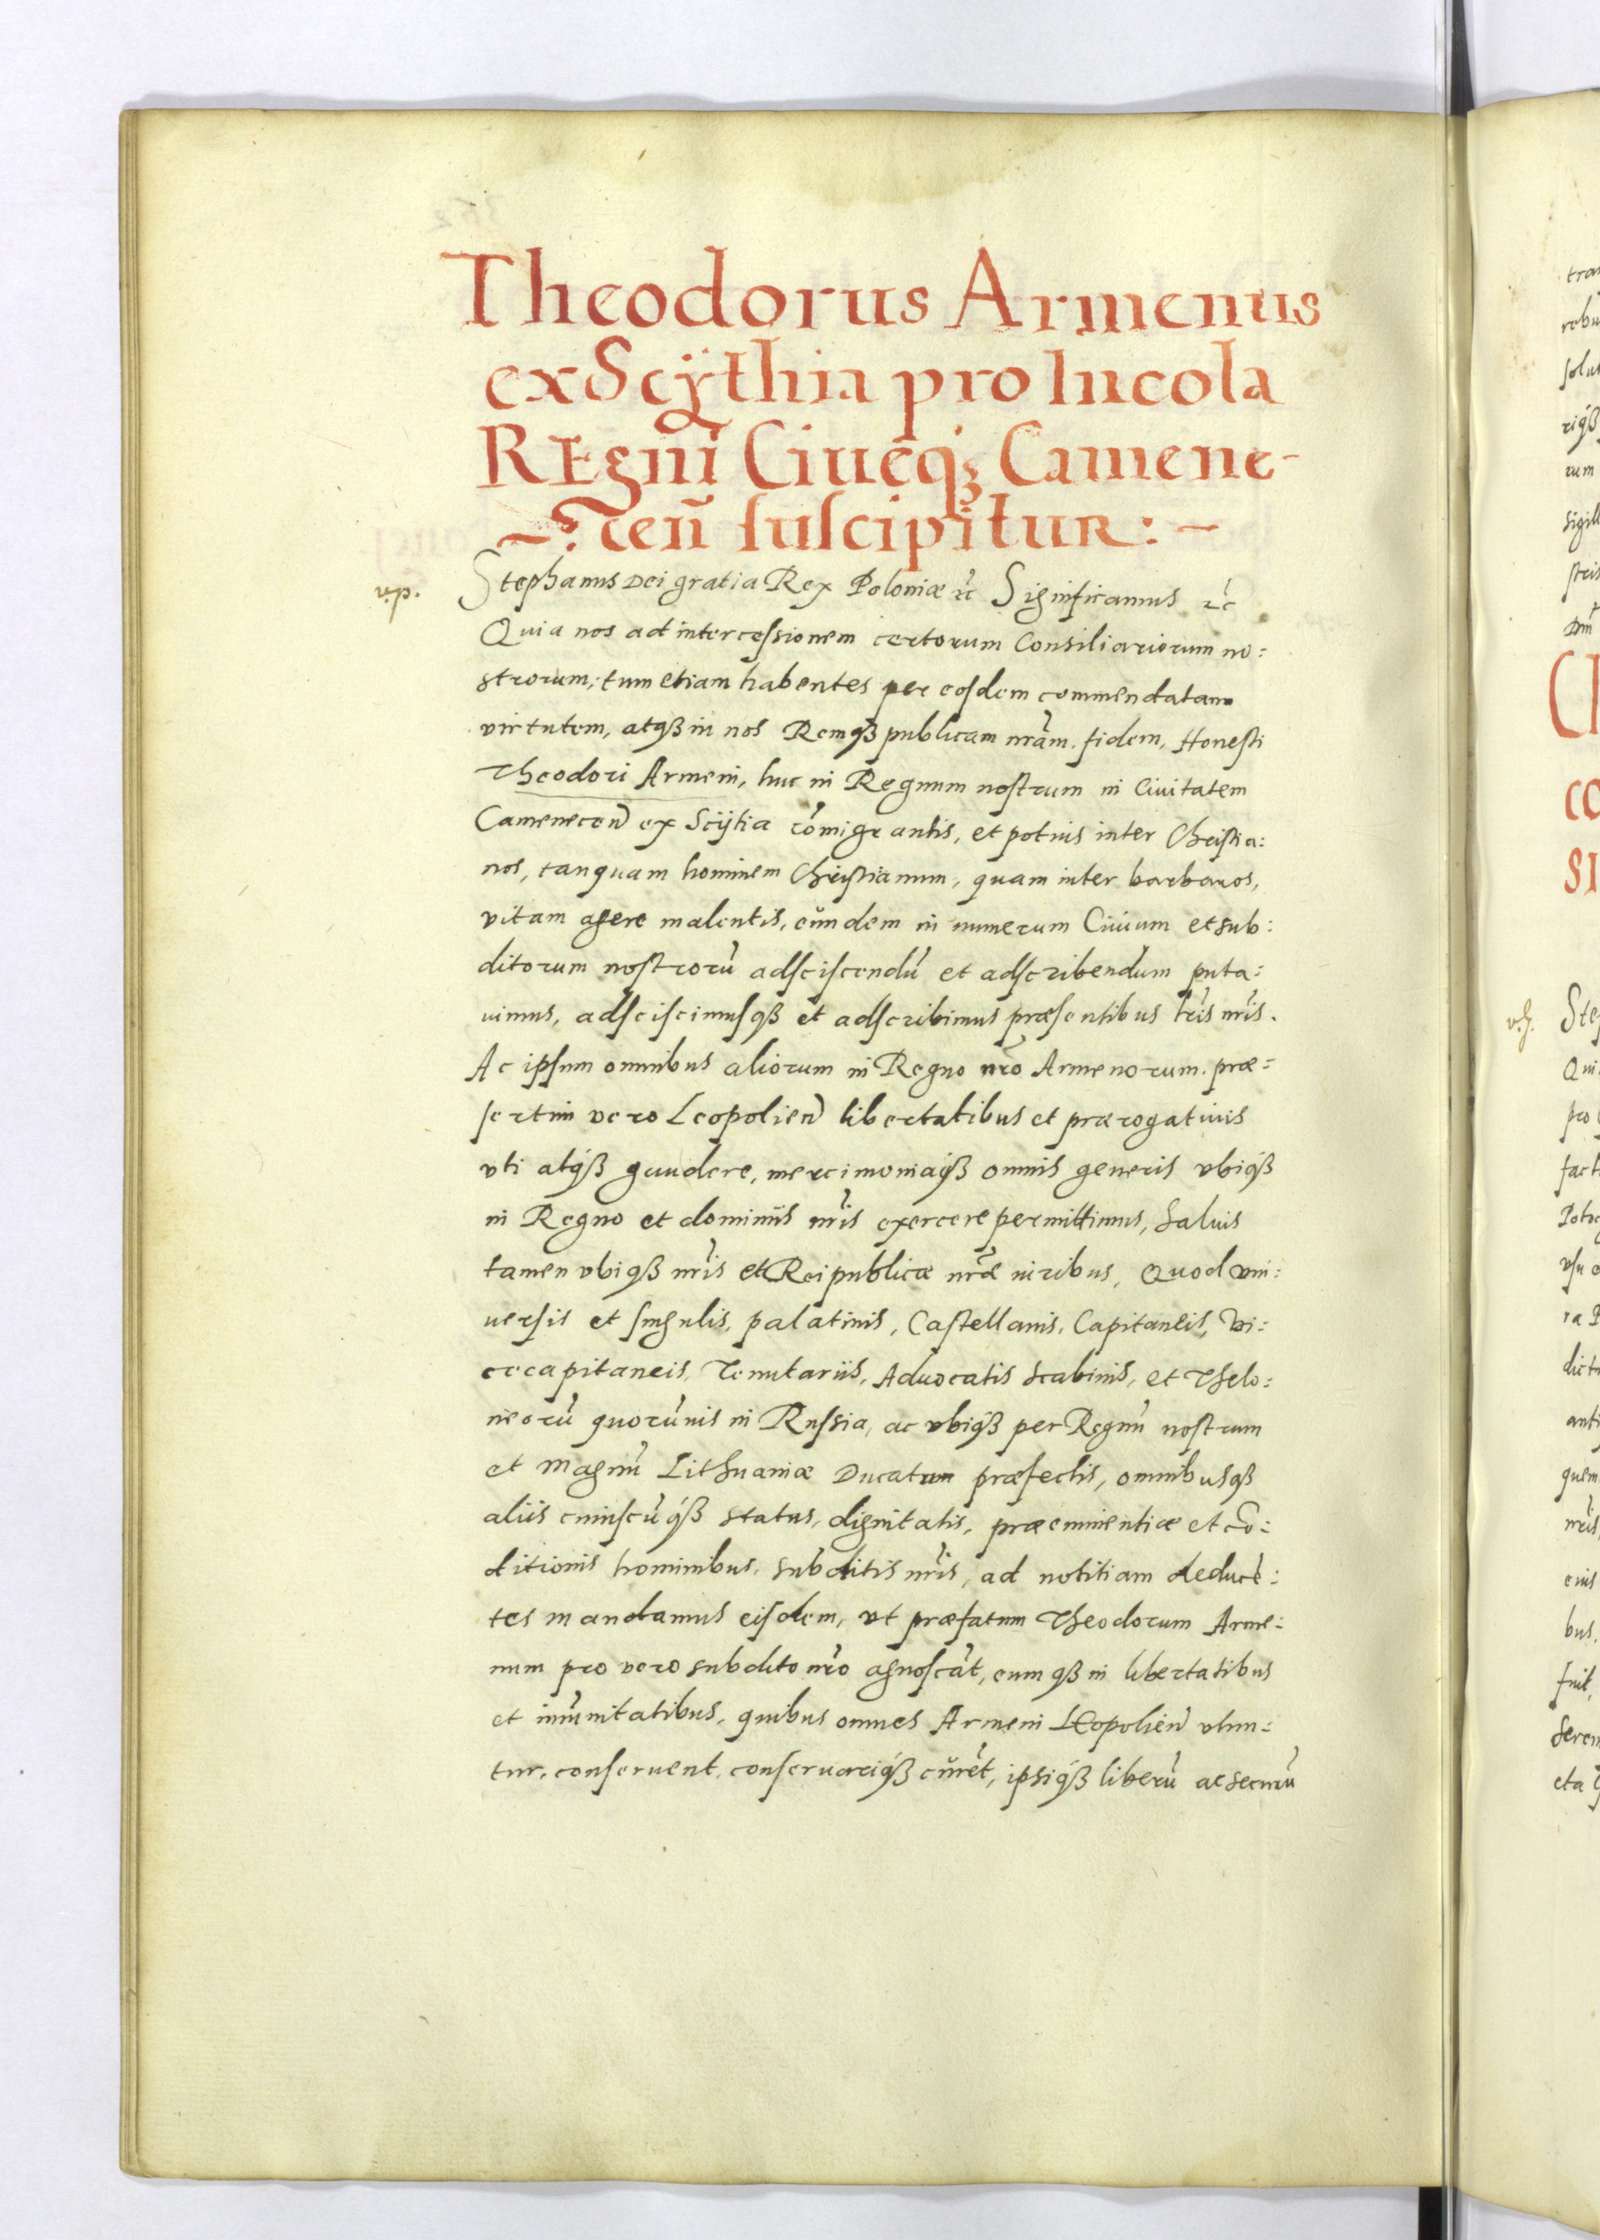 Theodorus Armenus
ex Scÿthia pro Incola
REgni Ciueq₃ Camene-
~ceñ suscipitur: ~
Stephanus Dei gratia Rex Poloniæ ꝛc Significamus ꝛc
Quia nos ad intercessionem certorum Consiliariorum no:
strorum, tum etiam habentes per eosdem commendatam
virtutem, atqß in nos Remqß publicam nram. fidem, Honesti
Theodori Armeni, huc in Regnum nostrum in Ciuitatem
Camenecen ex Scÿtia cõmigrantis, et potius inter Christia:
nos, tanquam hominem Christianum, quam inter barbaros,
vitam agere malentis, eũndem in numerum Ciuium et sub:
ditorum nostrorũ adsciscendũ et adscribendum puta:
uimus, adsciscimusqß et adscribimus præsentibus lris nris.
Ac ipsum omnibus aliorum in Regno nro Armenorum. præ:
sertim vero Leopolien libertatibus et prærogatiuis
vti atqß gaudere, mercimoniaqß omnis generis vbiqß
in Regno et dominiis nris exercere permittimus, Saluis
tamen vbiqß nris et Reipublicæ nræ iuribus, Quod vni:
uersis et singulis, palatinis, Castellanis, Capitaneis, Vi:
cecapitaneis, Tenutariis, Aduocatis Scabinis, et Thelo:
neorũ quorũuis in Russia, ac vbiqß per Regnũ nostrum
et Magnũ Lithuaniæ Ducatum præfectis, omnibusqß
aliis cuiuscũqß status, dignitatis, præeminentiæ et cõ:
ditionis hominibus, subditis nris, ad notitiam deducẽ:
tes mandamus eisdem, vt præfatum Theodorum Arme:
num pro vero subdito nro agnoscãt, eumqß in libertatibus
et imũnitatibus, quibus omnes Armeni Leopolien vtun:
tur, conseruent, conseruariqß curẽt, ipsiqß liberũ ac securũ